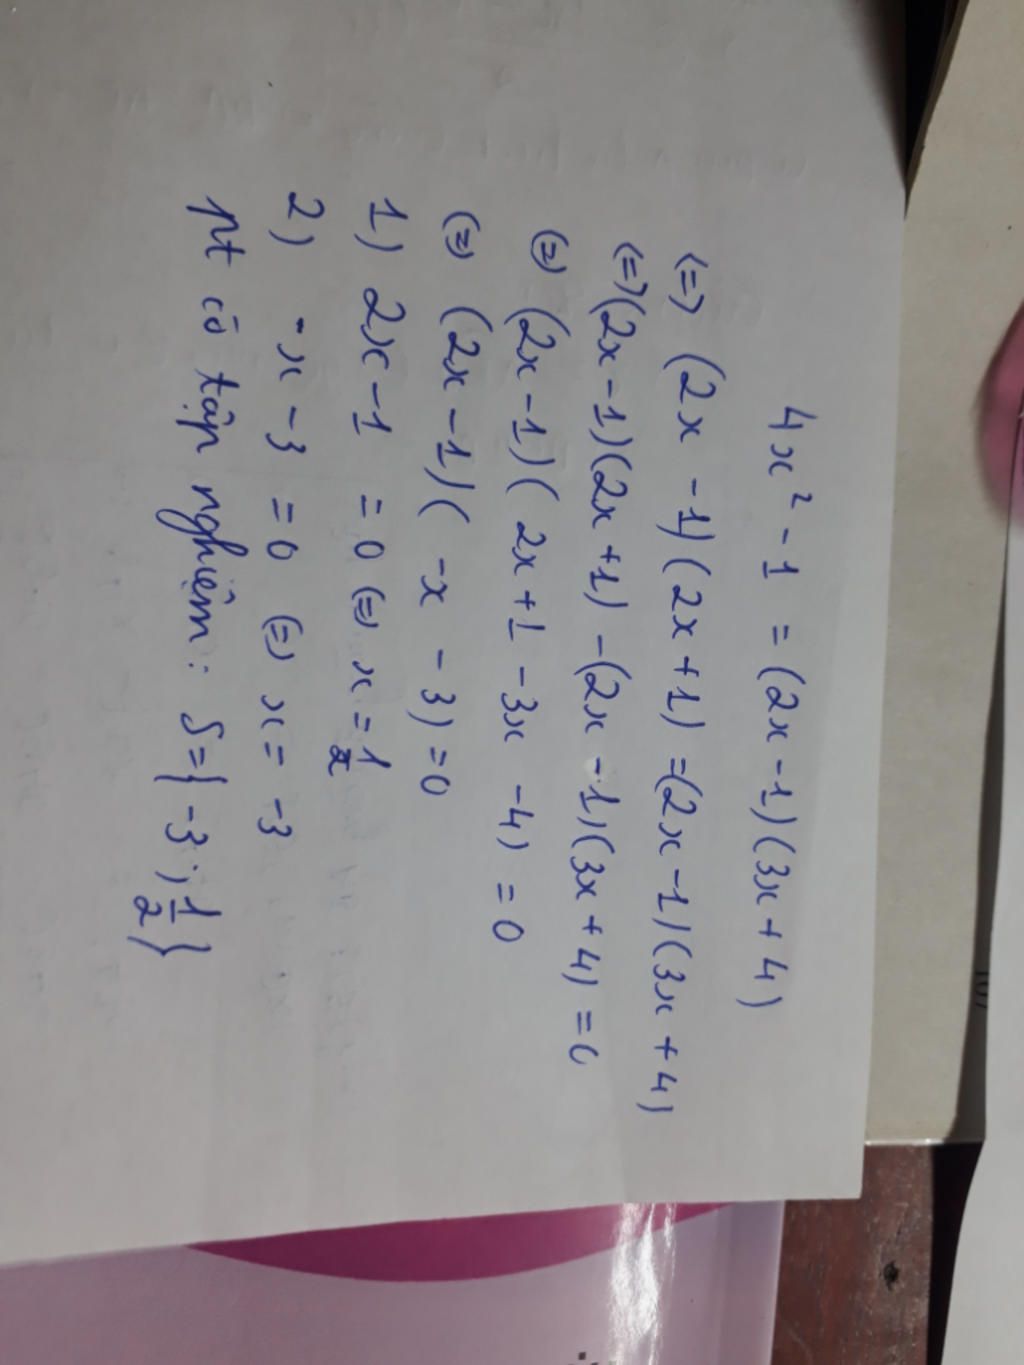 4x² - 1 = (2x - 1)(3x + 4)
(=) (2x - 1)(2x + 1) = (2x - 1)(3x + 4)
(=) (2x - 1)(2x + 1) - (2x - 1)(3x + 4) = 0
(=) (2x - 1)(2x + 1 - 3x - 4) = 0
(=) (2x - 1)(-x - 3) = 0
1) 2x - 1 = 0 (=) x = 1/2
2) -x - 3 = 0 (=) x = -3
pt có tập nghiệm: S = { -3; 1/2 }